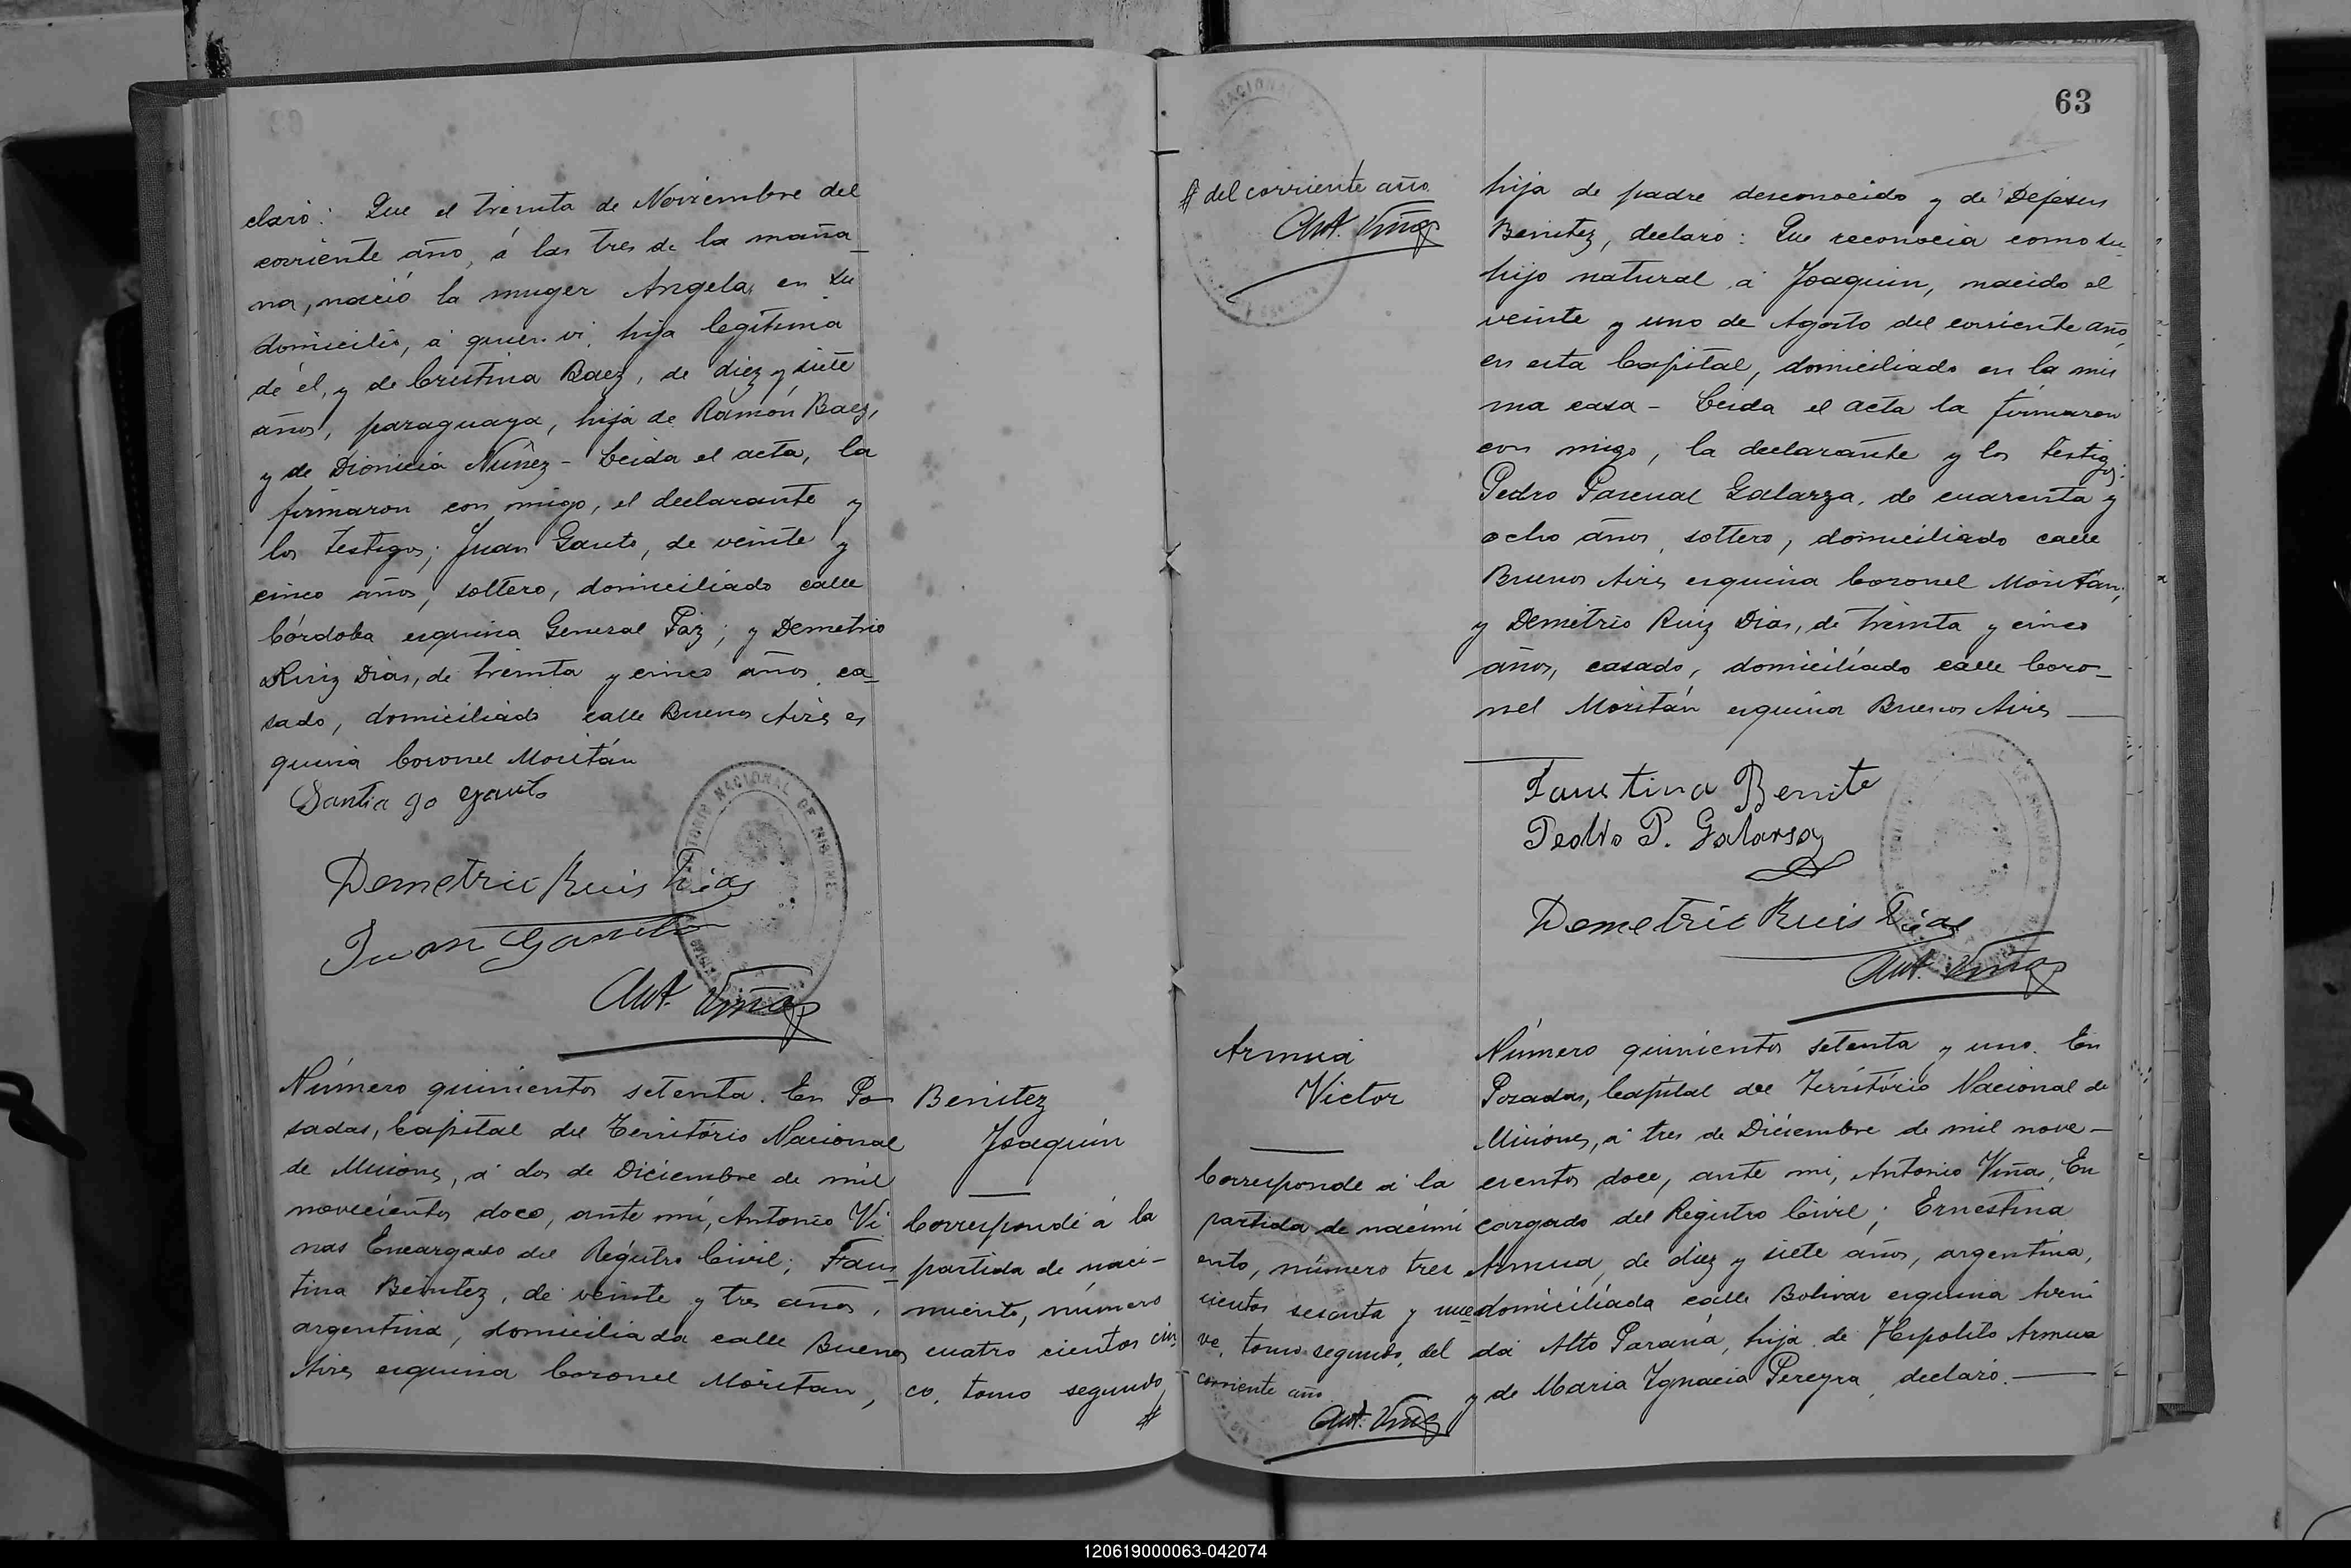 claró: Que el treinta de Noviembre del
corriente año, á las tres de la maña_
na, nació la muger Angela, en su
domicilio, á quien vi, hija legitima
de él, y de Cristina Baez, de diez y siete
años, paraguaya, hija de Ramón Baez,
y de Dionicia Nuñez - Leida el acta, la
firmaron con migo, el declarante y
los testigos; Juan Gauto, de veinte y
cinco años, soltero, domiciliado calle
Córdoba esquina General Paz; y Demetrio
Ruiz Dias, de treinta y cinco años, ca_
sado, domiciliado calle Buenos Aires es
quina Coronel Moritán
Santia go gauto
Demetrio Ruis Dias
Juan Gauto
Ant. Viñas
TERRITORIO NACIONAL DE MISIONES
Número quinientos setenta. En Po
sadas, Capital del Território Nacional
de Misiones, á dos de Diciembre de mil
novecientos doce, ante mi, Antonio Vi
ñas Encargado del Registro Civil; Faus_
tina Benitez, de veinte y tres años,
argentina, domiciliada calle Buenos
Aires esquina Coronel Moritan,
Benitez
Joaquín
Corresponde á la
partida de naci-
miento, número
cuatro cientos cin
co, tomo segundo
#
63
# del corriente año
Ant. Viñas
hija de padre desconocido y de Dejesus
Benitez, declaró: Que reconocia como su
hijo natural á Joaquin, nacido el
veinte y uno de Agosto del corriente año,
en esta Capital, domiciliado en la mis
ma casa - Leida el acta la firmaron
con migo, la declarante y los testigos:
Pedro Pascual Galarza, de cuarenta y
ocho años, soltero, domiciliado calle
Buenos Aires esquina Coronel Moritán;
y Demetrio Ruiz Dias, de treinta y cinco
años, casado, domiciliado calle Coro_
nel Moritán esquina Buenos Aires
Faustina Benite
Pedro P. Galarsa
Demetrio Ruis Dias
Ant. Viñas
Armua
Victor
Corresponde á la
partida de naсimi
ento, número tres
cientos sesenta y nue
ve, tomo segundo, del
corriente año
Ant. Viñas
Número quinientos setenta y uno. En
Posadas, Capital del Território Nacional de
Misiones, á tres de Diciembre de mil nove-
cientos doce, ante mi, Antonio Viñas, En
cargado del Registro Civil; Ernestina
Armua, de diez y siete años, argentina,
domiciliada calle Bolivar esquina Aveni
da Alto Paraná, hija de Hipolito Armua
y de Maria Ygnacia Pereyra, declaró.
120619000063-042074